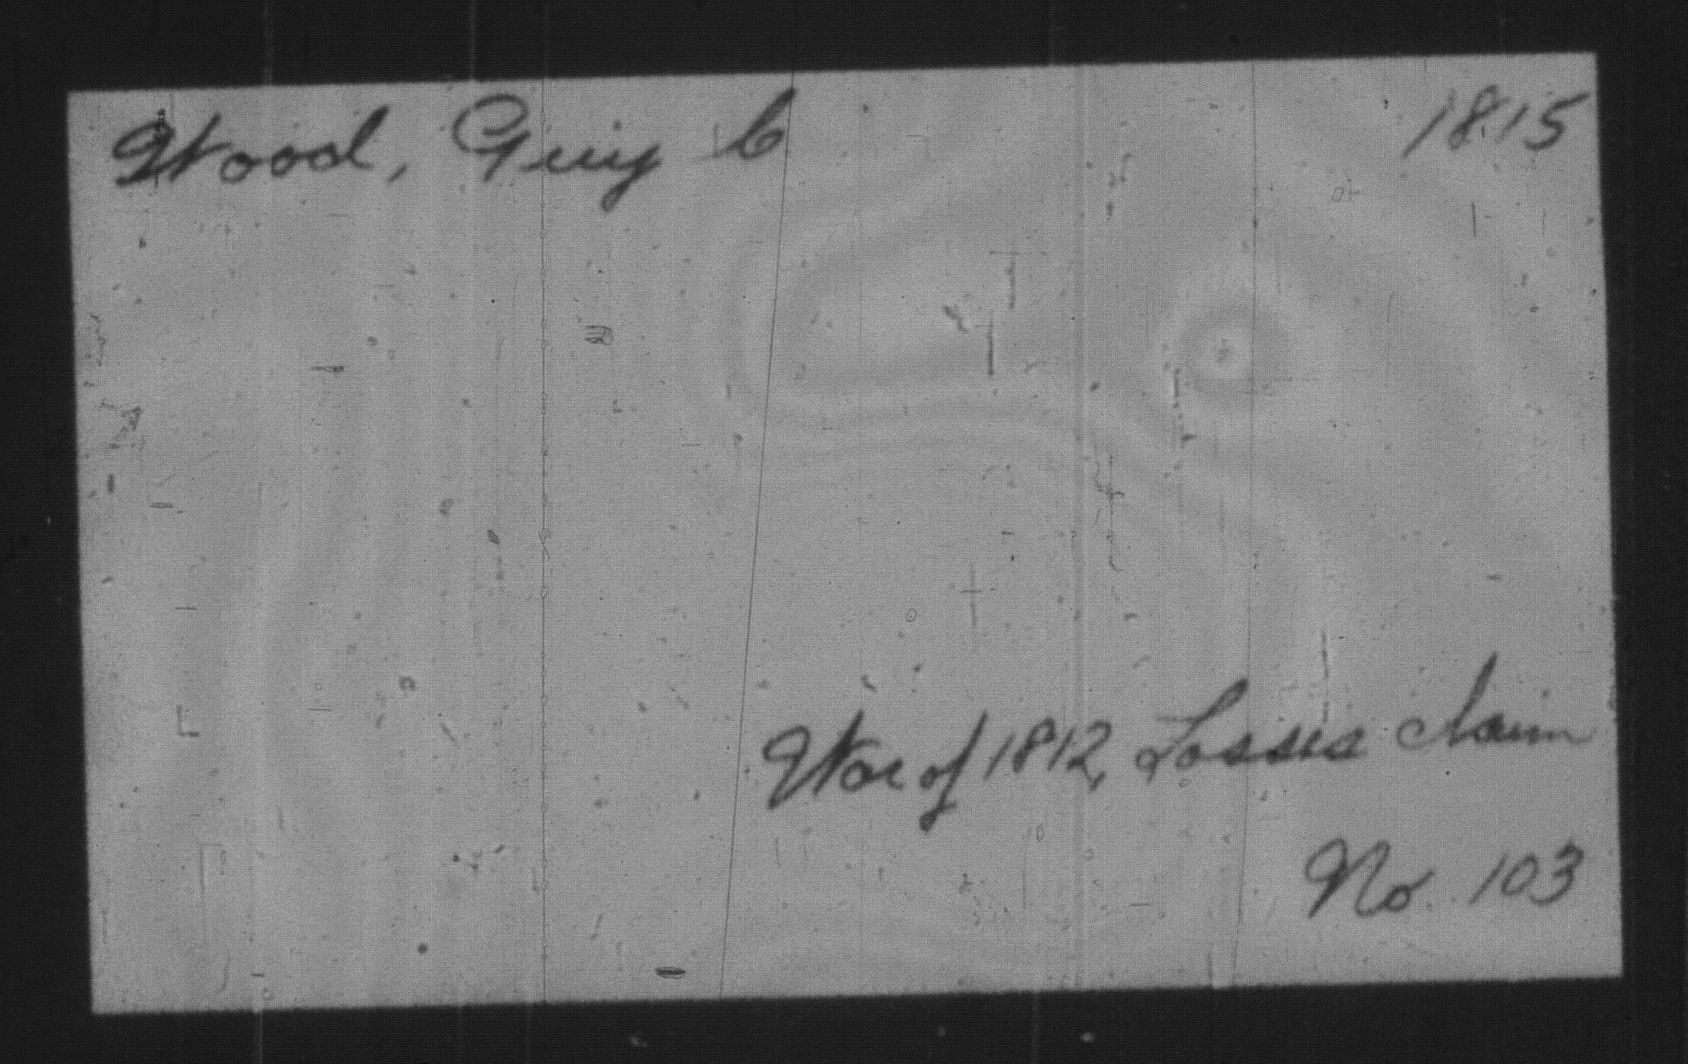 Wood, Guy C 1815
War of 1812, Losses claim
No. 103